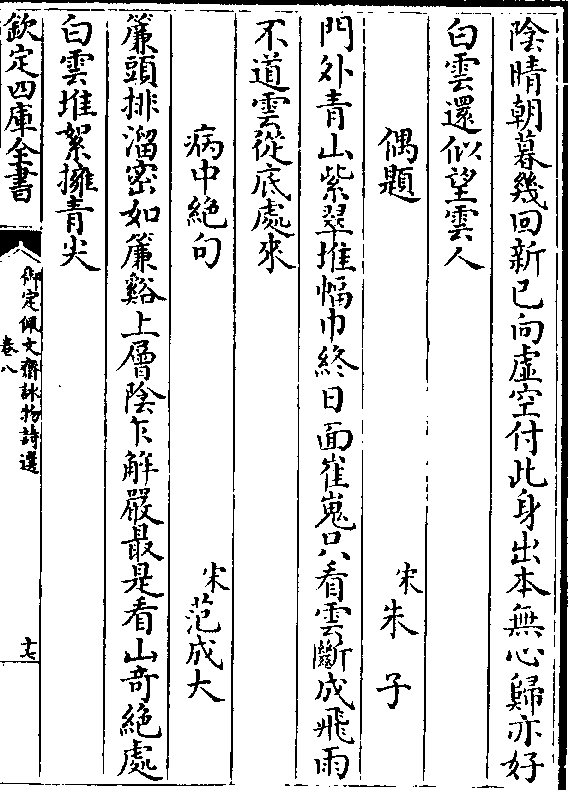 陰晴朝暮幾回新已向虛空付此身出本無心歸亦好
白雲還似望雲人
偶題
宋朱子
門外青山紫翠堆幅巾終日面崔嵬只看雲斷成飛雨
不道雲從底處來
病中絶句
宋范成大
簷頭排溜密如簾谿上層陰乍解嚴最是看山奇絶處
白雲堆絮擁青尖
欽定四庫全書
御定佩文齋詠物詩選
卷八
十七